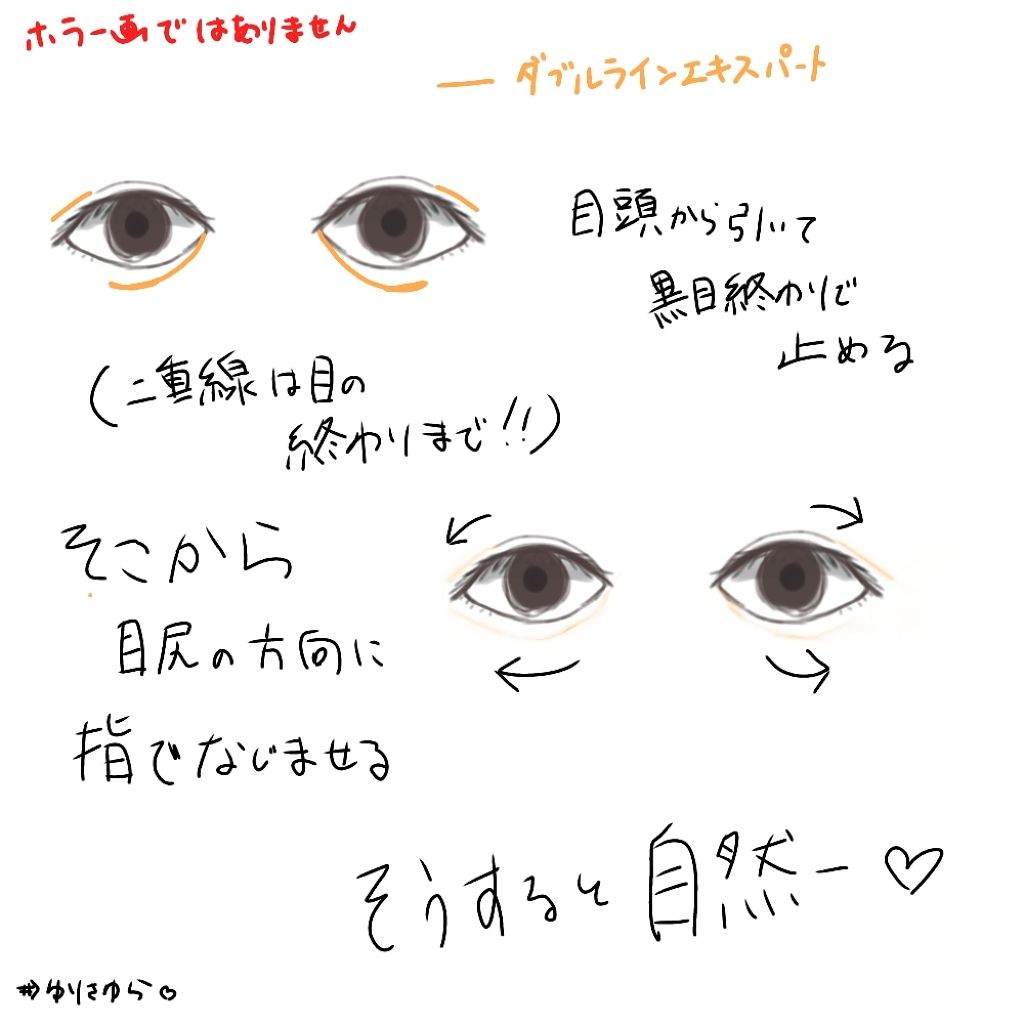 ホラー画ではありません
― ダブルラインエキスパート
目頭から引いて
黒目終わりで
止める
(二重線は目の
終わりまで!!)
そこから
目尻の方向に
指でなじませる
そうすると自然ー♡
#ゆりさゆら♡